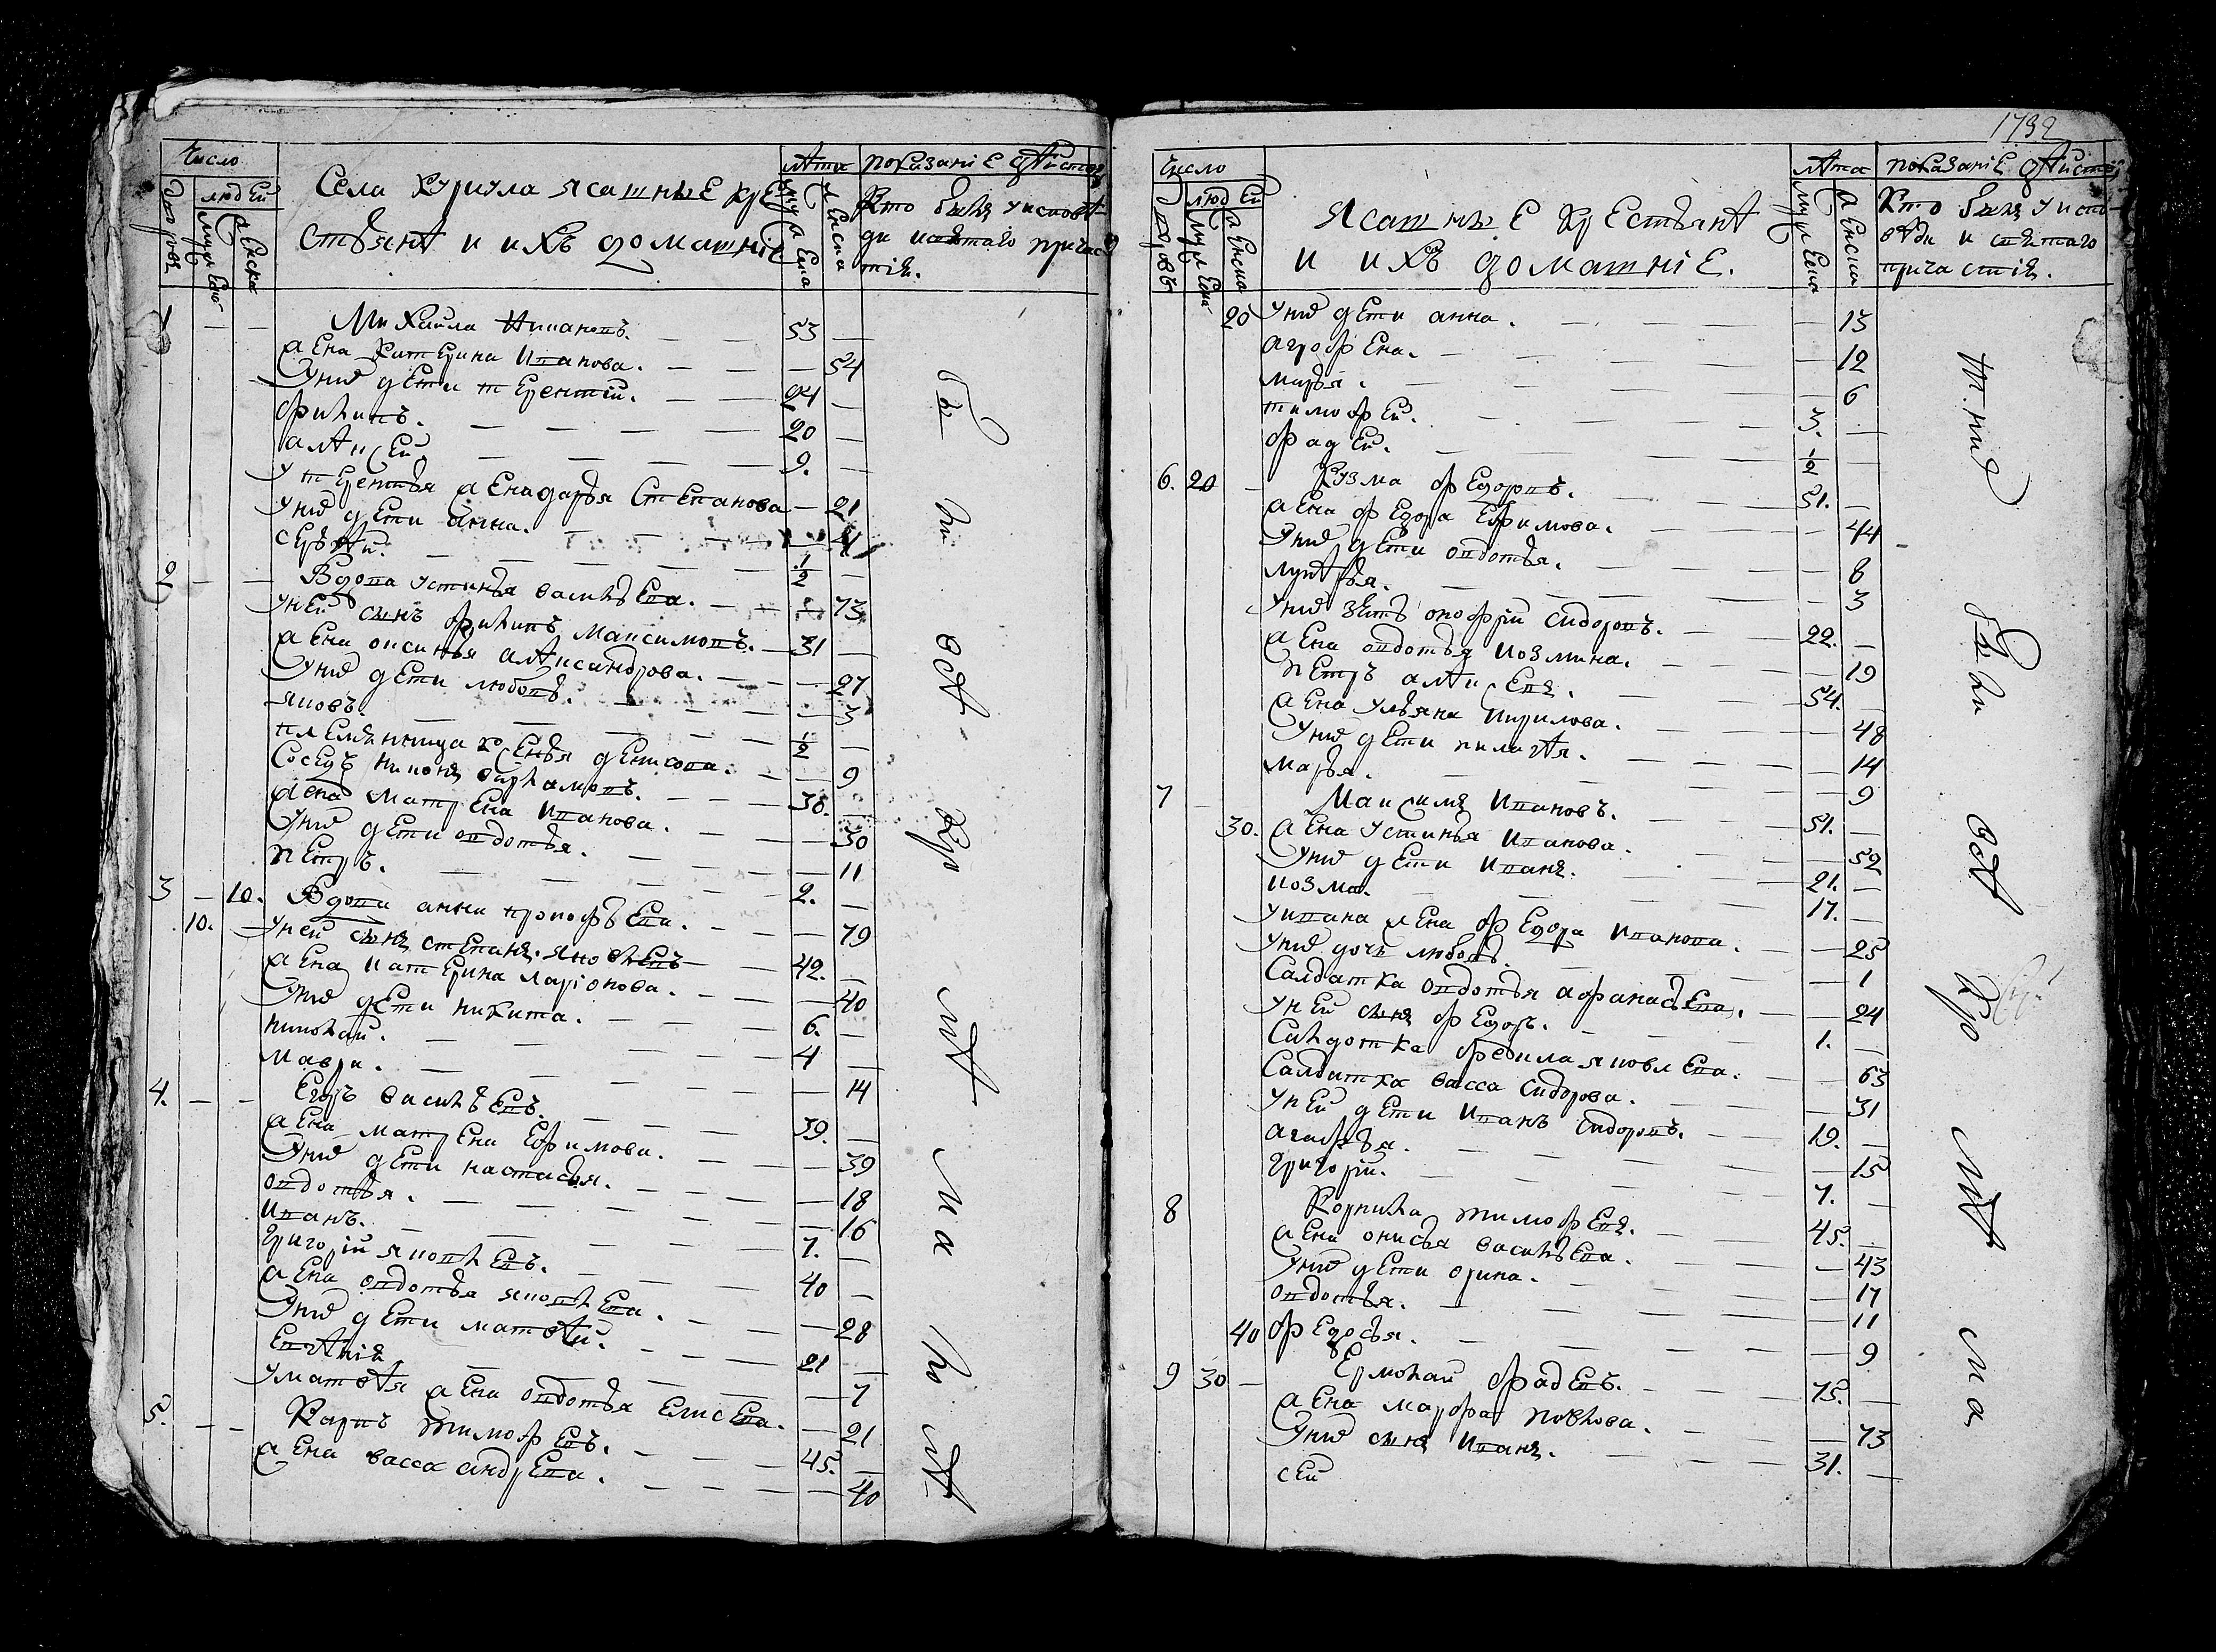 Число
людей
дворовъ
мужеска
женска
Села Куриула ясашные кре
стьянѣ и ихъ домашніе
лѣта
мужеска
женска
показаніе дѣйства
Кто былъ уисповѣ
ди исвятаго причас
тія.
1 — — Михаила Ивановъ. — — 53 —
жена Катерина Иванова. — — — 54
Унихъ дети терентій. — — 24 —
филипъ. — — — — 20 —
алѣксей — — — — 9. —
у терентья жена дарья Степанова — 21
унихъ дети анна. — — — — 4
сергѣй. — — — — 1/2 —
2 — — Вдова устинья васильева. — — 73
уней сынъ филипъ Максимовъ. — 31 —
жена оксинья алѣксандрова. — — — 27
Унихъ дети любовь. — — — — 3
яковъ. — — — — 1/2 —
племянница ксенья денисова. — — 9
Соседъ никонъ варламовъ. — — 38. —
жена матрена Иванова. — — — 30
Унихъ дети овдотья. — — — — 11
Петръ. — — — — 2. —
3 — 10. Вдова анна прокофьева. — — — 79
10. — уней сынъ степанъ. яковлевъ — — 42. —
жена катерина ларіонова. — — — 40
Унихъ дети никита. — — — 6. —
николай. — — — — 4 —
мавра. — — — — — 14
4. — — Егоръ васильевъ. — — — 39. —
жена матрена Ефимова. — — — 39
Унихъ дети настасья. — — — — 18
овдотья. — — — — — 16
Иванъ. — — — — 7. —
григорій яковлевъ. — — — 40 —
жена овдотья яковлева. — — — 28
Унихъ дети матвѣй. — — — 21 —
Евгѣнія — — — — 7
уматвѣя жена овдотья Елисеева. — 21
5. — — Карпъ тимофеевъ. — — — 45. —
жена васса андреева. — — — — 40
бы
ли
всѣ
кро
мѣ
ма
лο
лѣ
1792
Число
людей
дворовъ
мужеска
женска
Ясашные крестьянѣ
и ихъ домашніе.
лѣта
мужеска
женска
показаніе дѣйства
Кто былъ уиспо
вѣди и святаго
причастія.
20 Унихъ дети анна. — — — — 13
агрофена. — — — — 12
марья. — — — — 6
тимофей. — — — 3. —
фадей. — — — — 1/2 —
6. 20 — Кузма федоровъ. — — — 51. —
жена федора Ефимова. — — — 44
Унихъ дети овдотья. — — — — 8
лукѣрья. — — — — 3
унихъ зять онофрій сидоровъ. — 22. —
жена овдотья козмина. — — — 19
Петръ алѣксеевъ. — — — 54. —
жена ульяна кирилова. — — — 48
Унихъ дети пилагѣя. — — — — 14
марья. — — — — — 9
7 Максимъ Ивановъ. — — — 51. —
30. жена устинья Иванова. — — — 52
Унихъ дети Иванъ. — — — 21. —
козма. — — — — 17. —
уивана жена федора Иванова. — — 25
унихъ дочь любовь. — — — — 1
Салдатка овдотья афанасьева. — — 24
уней сынъ федоръ. — — — 1. —
Салдотка федила яковлева. — — 63
Салдатка васса сидорова. — — — 31
уней дети Иванъ сидоровъ. — — 19. —
агафья. — — — — — 15
григорій. — — — — 7. —
8 Корнила тимофеевъ. — — — 45. —
жена онисья васильева. — — — 43
Унихъ дети орина. — — — — 17
овдотья. — — — — — 11
40 федосья. — — — — — 9
9 30 — Ермолай фадевъ. — — — 75. —
жена марфа павлова. — — — 73
Унихъ сынъ Иванъ. — — — 31. —
сей
т.нихъ
были
всѣ
кро
мѣ
ма